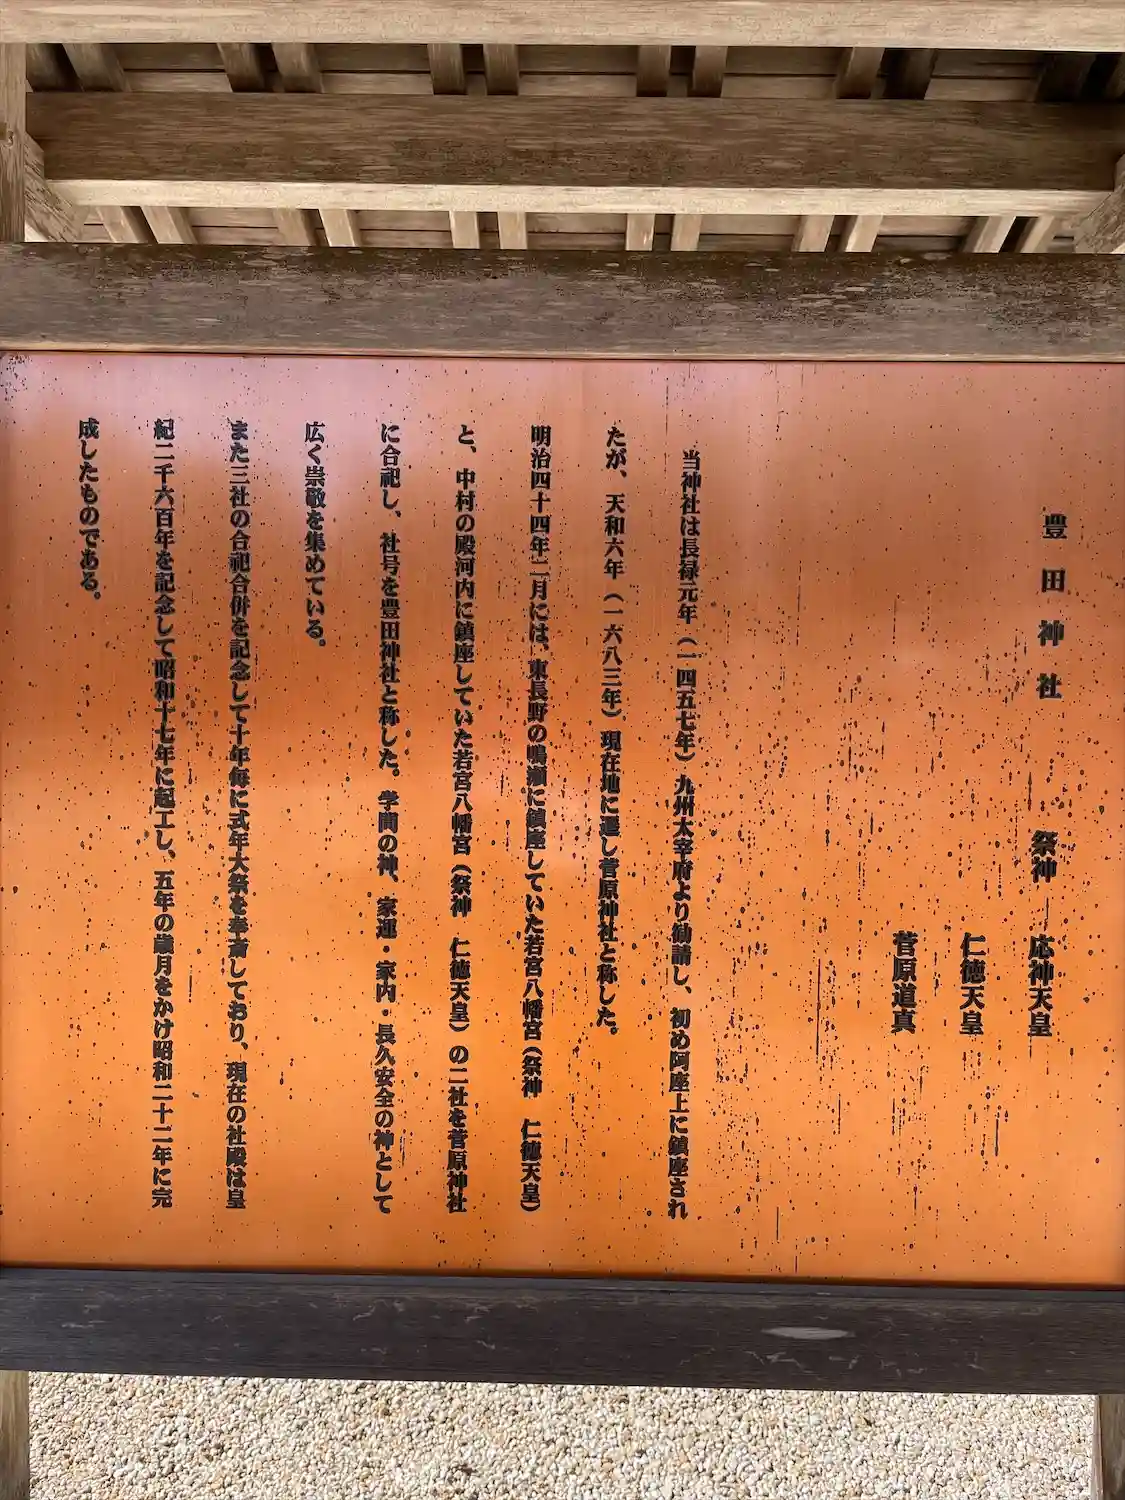 豊田神社
祭神 応神天皇
仁徳天皇
菅原道真
当神社は長禄元年（一四五七年）九州太宰府より勧請し、初め阿座上に鎮座され
たが、天和六年（一六八三年）現在地に遷し菅原神社と称した。
明治四十四年二月には、東長野の鳴瀬に鎮座していた若宮八幡宮（祭神 仁徳天皇）
と、中村の殿河内に鎮座していた若宮八幡宮（祭神 仁徳天皇）の二社を菅原神社
に合祀し、社号を豊田神社と称した。学問の神、家運・家内・長久安全の神として
広く崇敬を集めている。
また三社の合祀合併を記念して十年毎に式年大祭を奉斎しており、現在の社殿は皇
紀二千六百年を記念して昭和十七年に起工し、五年の歳月をかけ昭和二十二年に完
成したものである。